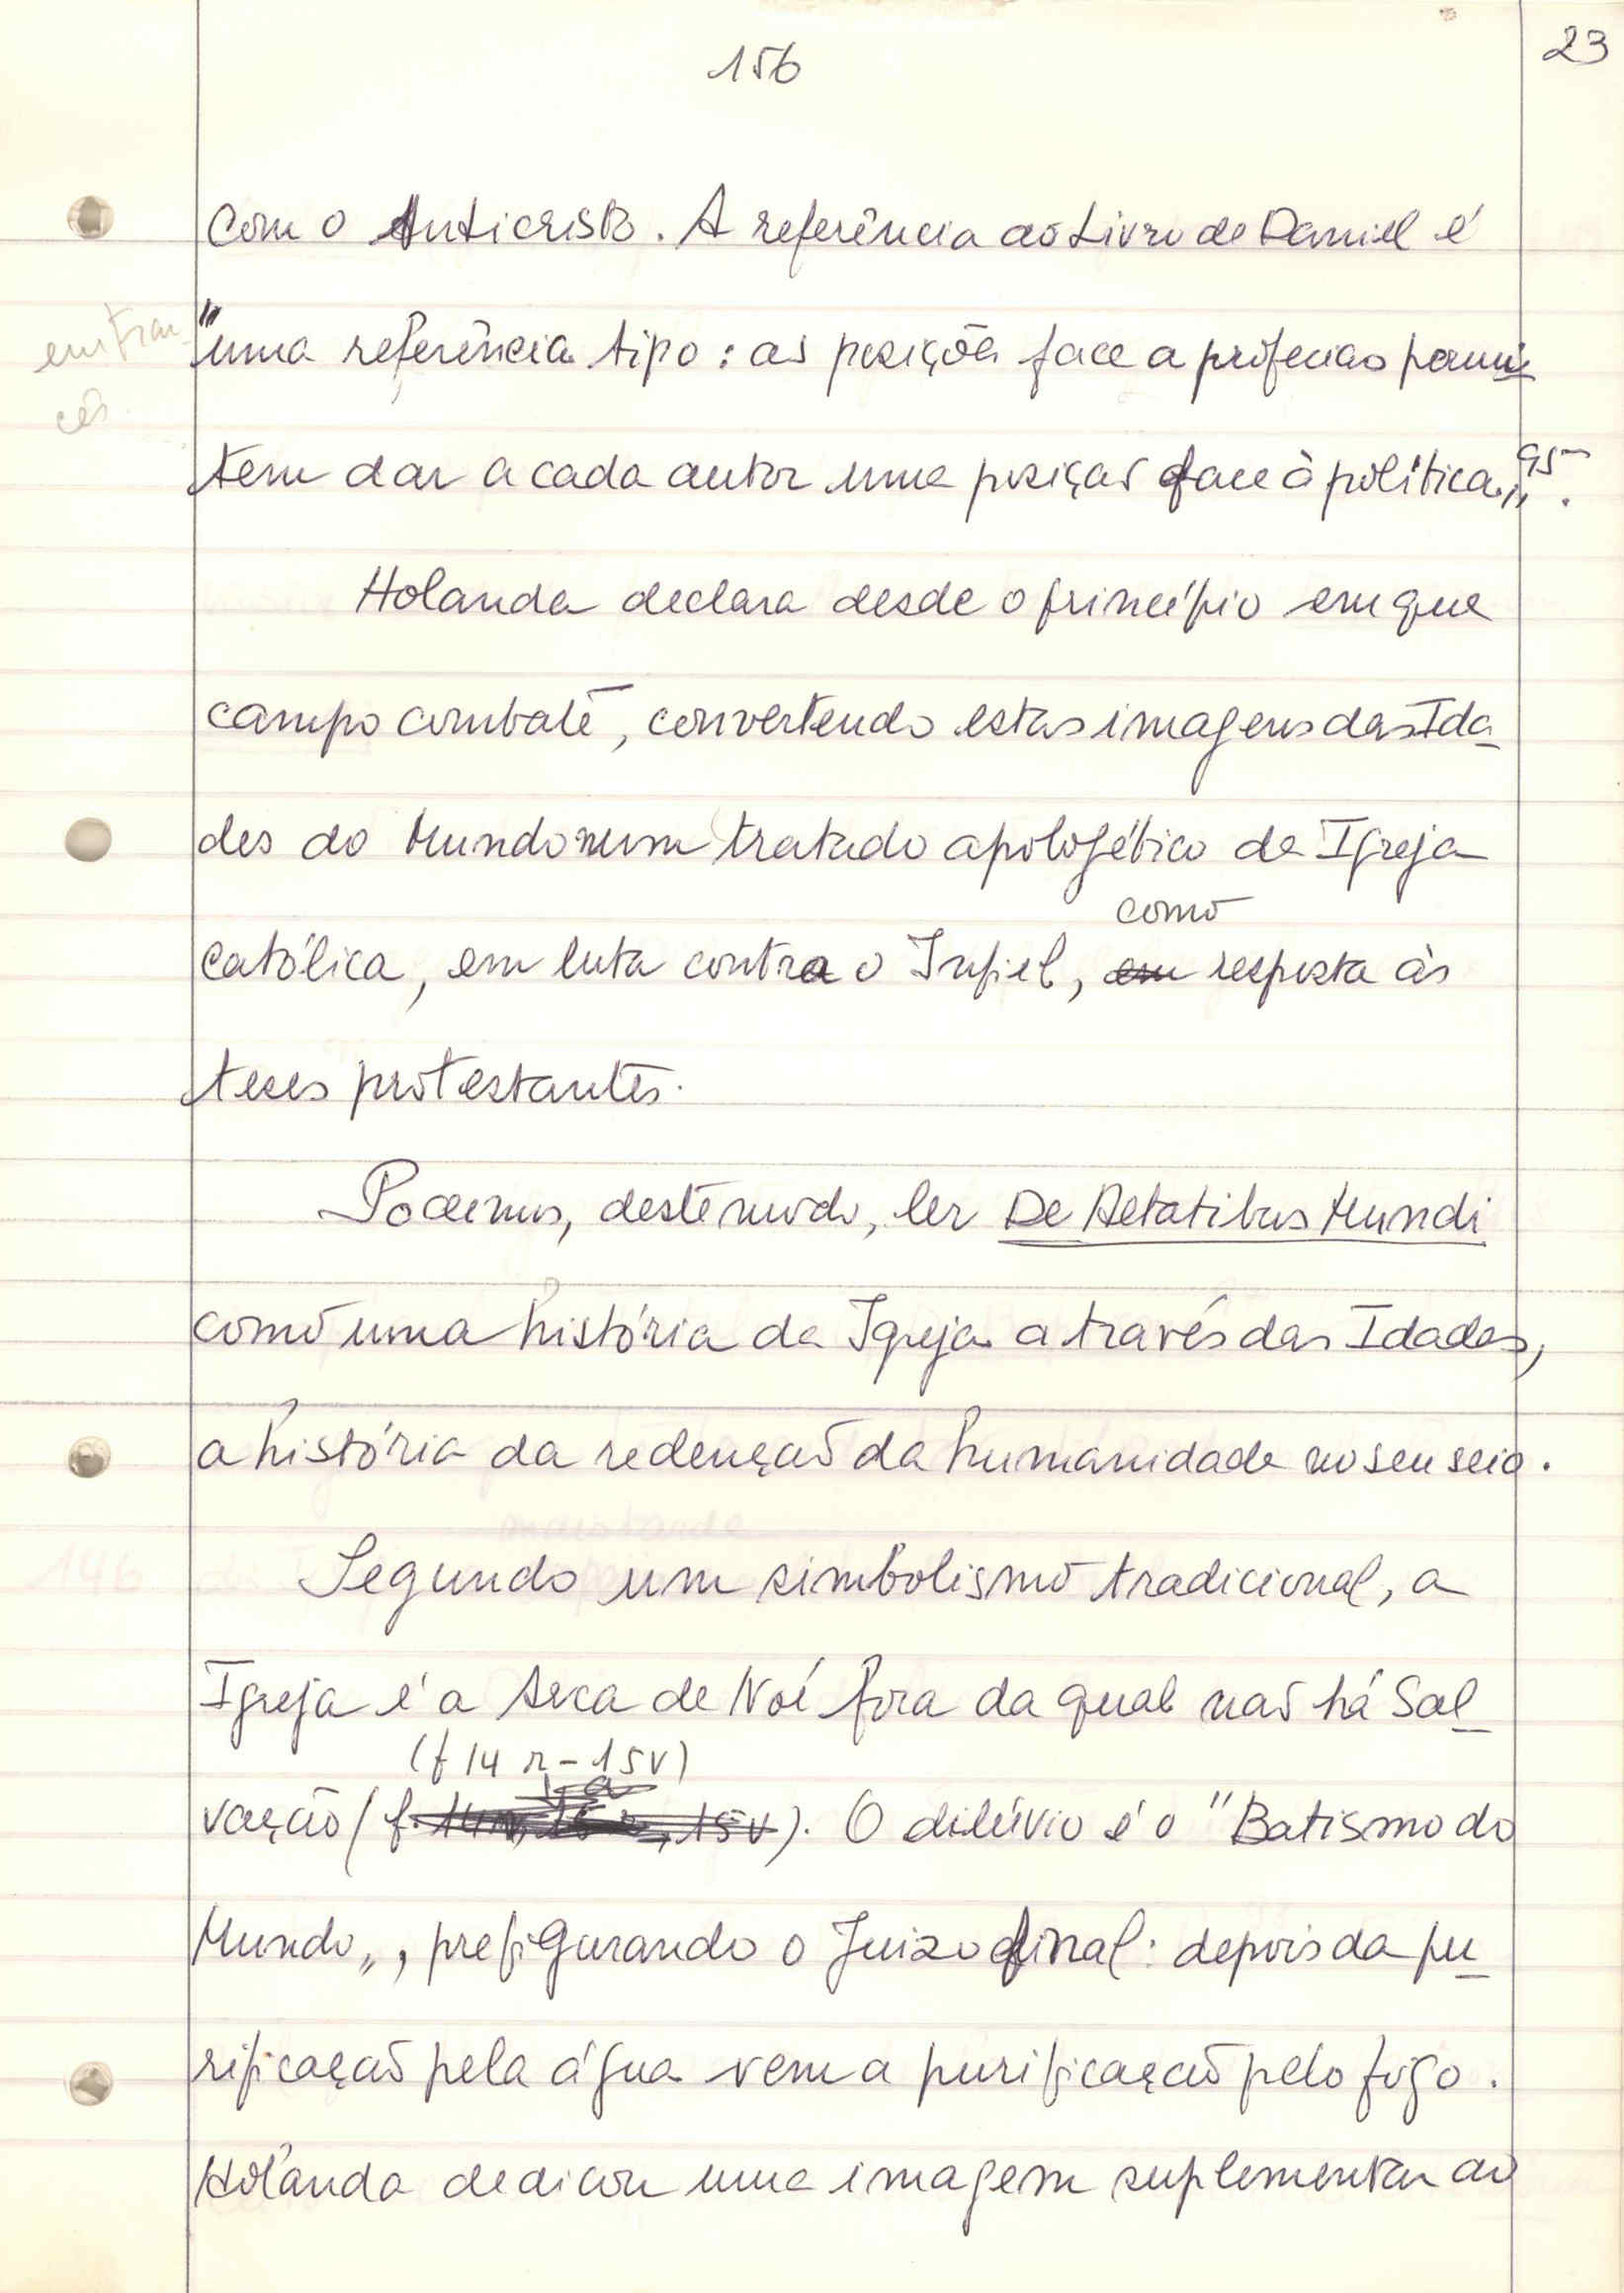 156
23
com o Anticristo. A referência ao Livro de Daniel é
em fran-
cês
"uma referência tipo: as posições face a profecias permi
tem dar a cada autor uma posição face à política„95.
Holanda declara desde o princípio em que
campo combate, convertendo estas imagens das Ida
des do Mundo num tratado apologético da Igreja
como
católica, em luta contra o Infiel, em resposta às
teses protestantes.
Podemos, deste modo, ler De Aetatibus Mundi
como uma história da Igreja através das Idades,
a história da redenção da humanidade no seu seio.
Segundo um simbolismo tradicional, a
Igreja é a Arca de Noé fora da qual não há Sal
(f 14 r - 15v)
vação (f. 15v). O dilúvio é o "Batismo do
Mundo„, prefigurando o Juizo final: depois da pu
rificação pela água vem a purificação pelo fogo.
Holanda dedicou uma imagem suplementar ao